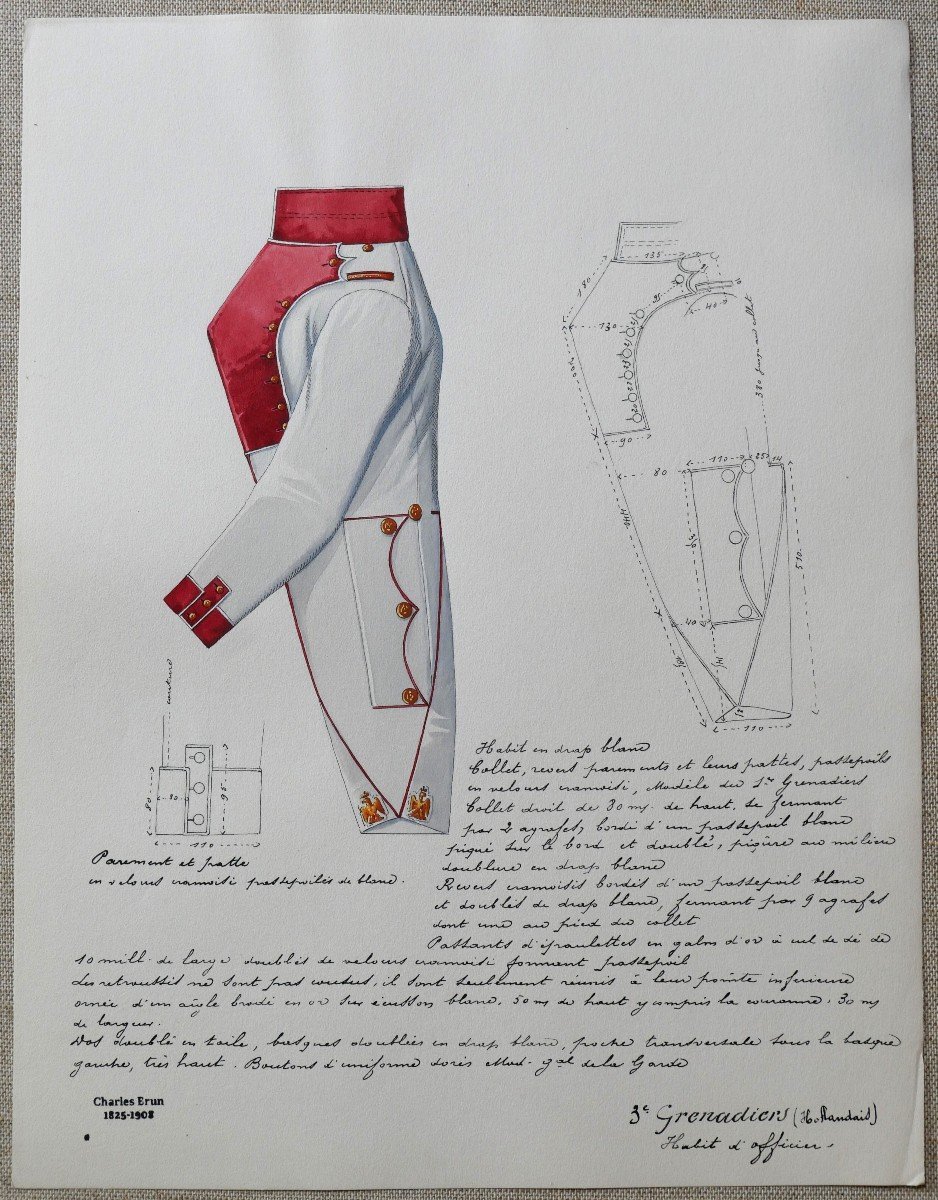 135
180
15
15
10
40
130
25
25
23
23
20
20
90
380 jusqu'au collet
80
110
25
14
510
40
110
couture
80
30
95
110
Parement et patte
en velours cramoisi passepoilés de blanc.
Habit en drap blanc
Collet, revers parements et leurs pattes, passepoils
en velours cramoisi, Modèle du 1er Grenadiers
Collet droit de 80 m/m. de haut, se fermant
par 2 agrafes, bordé d'un passepoil blanc
piqué sur le bord et doublé, piqûre au milieu
doublure en drap blanc
Revers cramoisis bordés d'un passepoil blanc
et doublés de drap blanc, fermant par 9 agrafes
dont une au pied du collet
Passants d'épaulettes en galon d'or à cul de dé de
10 mill. de large doublés de velours cramoisi formant passepoil
Les retroussis ne sont pas cousus, il sont seulement réunis à leur pointe inférieure
ornée d'un aigle brodé en or sur écusson blanc, 50 m/m de haut y compris la couronne, 30 m/m
de largeur.
Dos doublé en toile, basques doublées en drap blanc, poche transversale sous la basque
gauche, très haut. Boutons d'uniforme dorés Mod. gal de la Garde
Charles Erun
1825-1908
3e Grenadiers (Hollandais)
Habit d'officier.